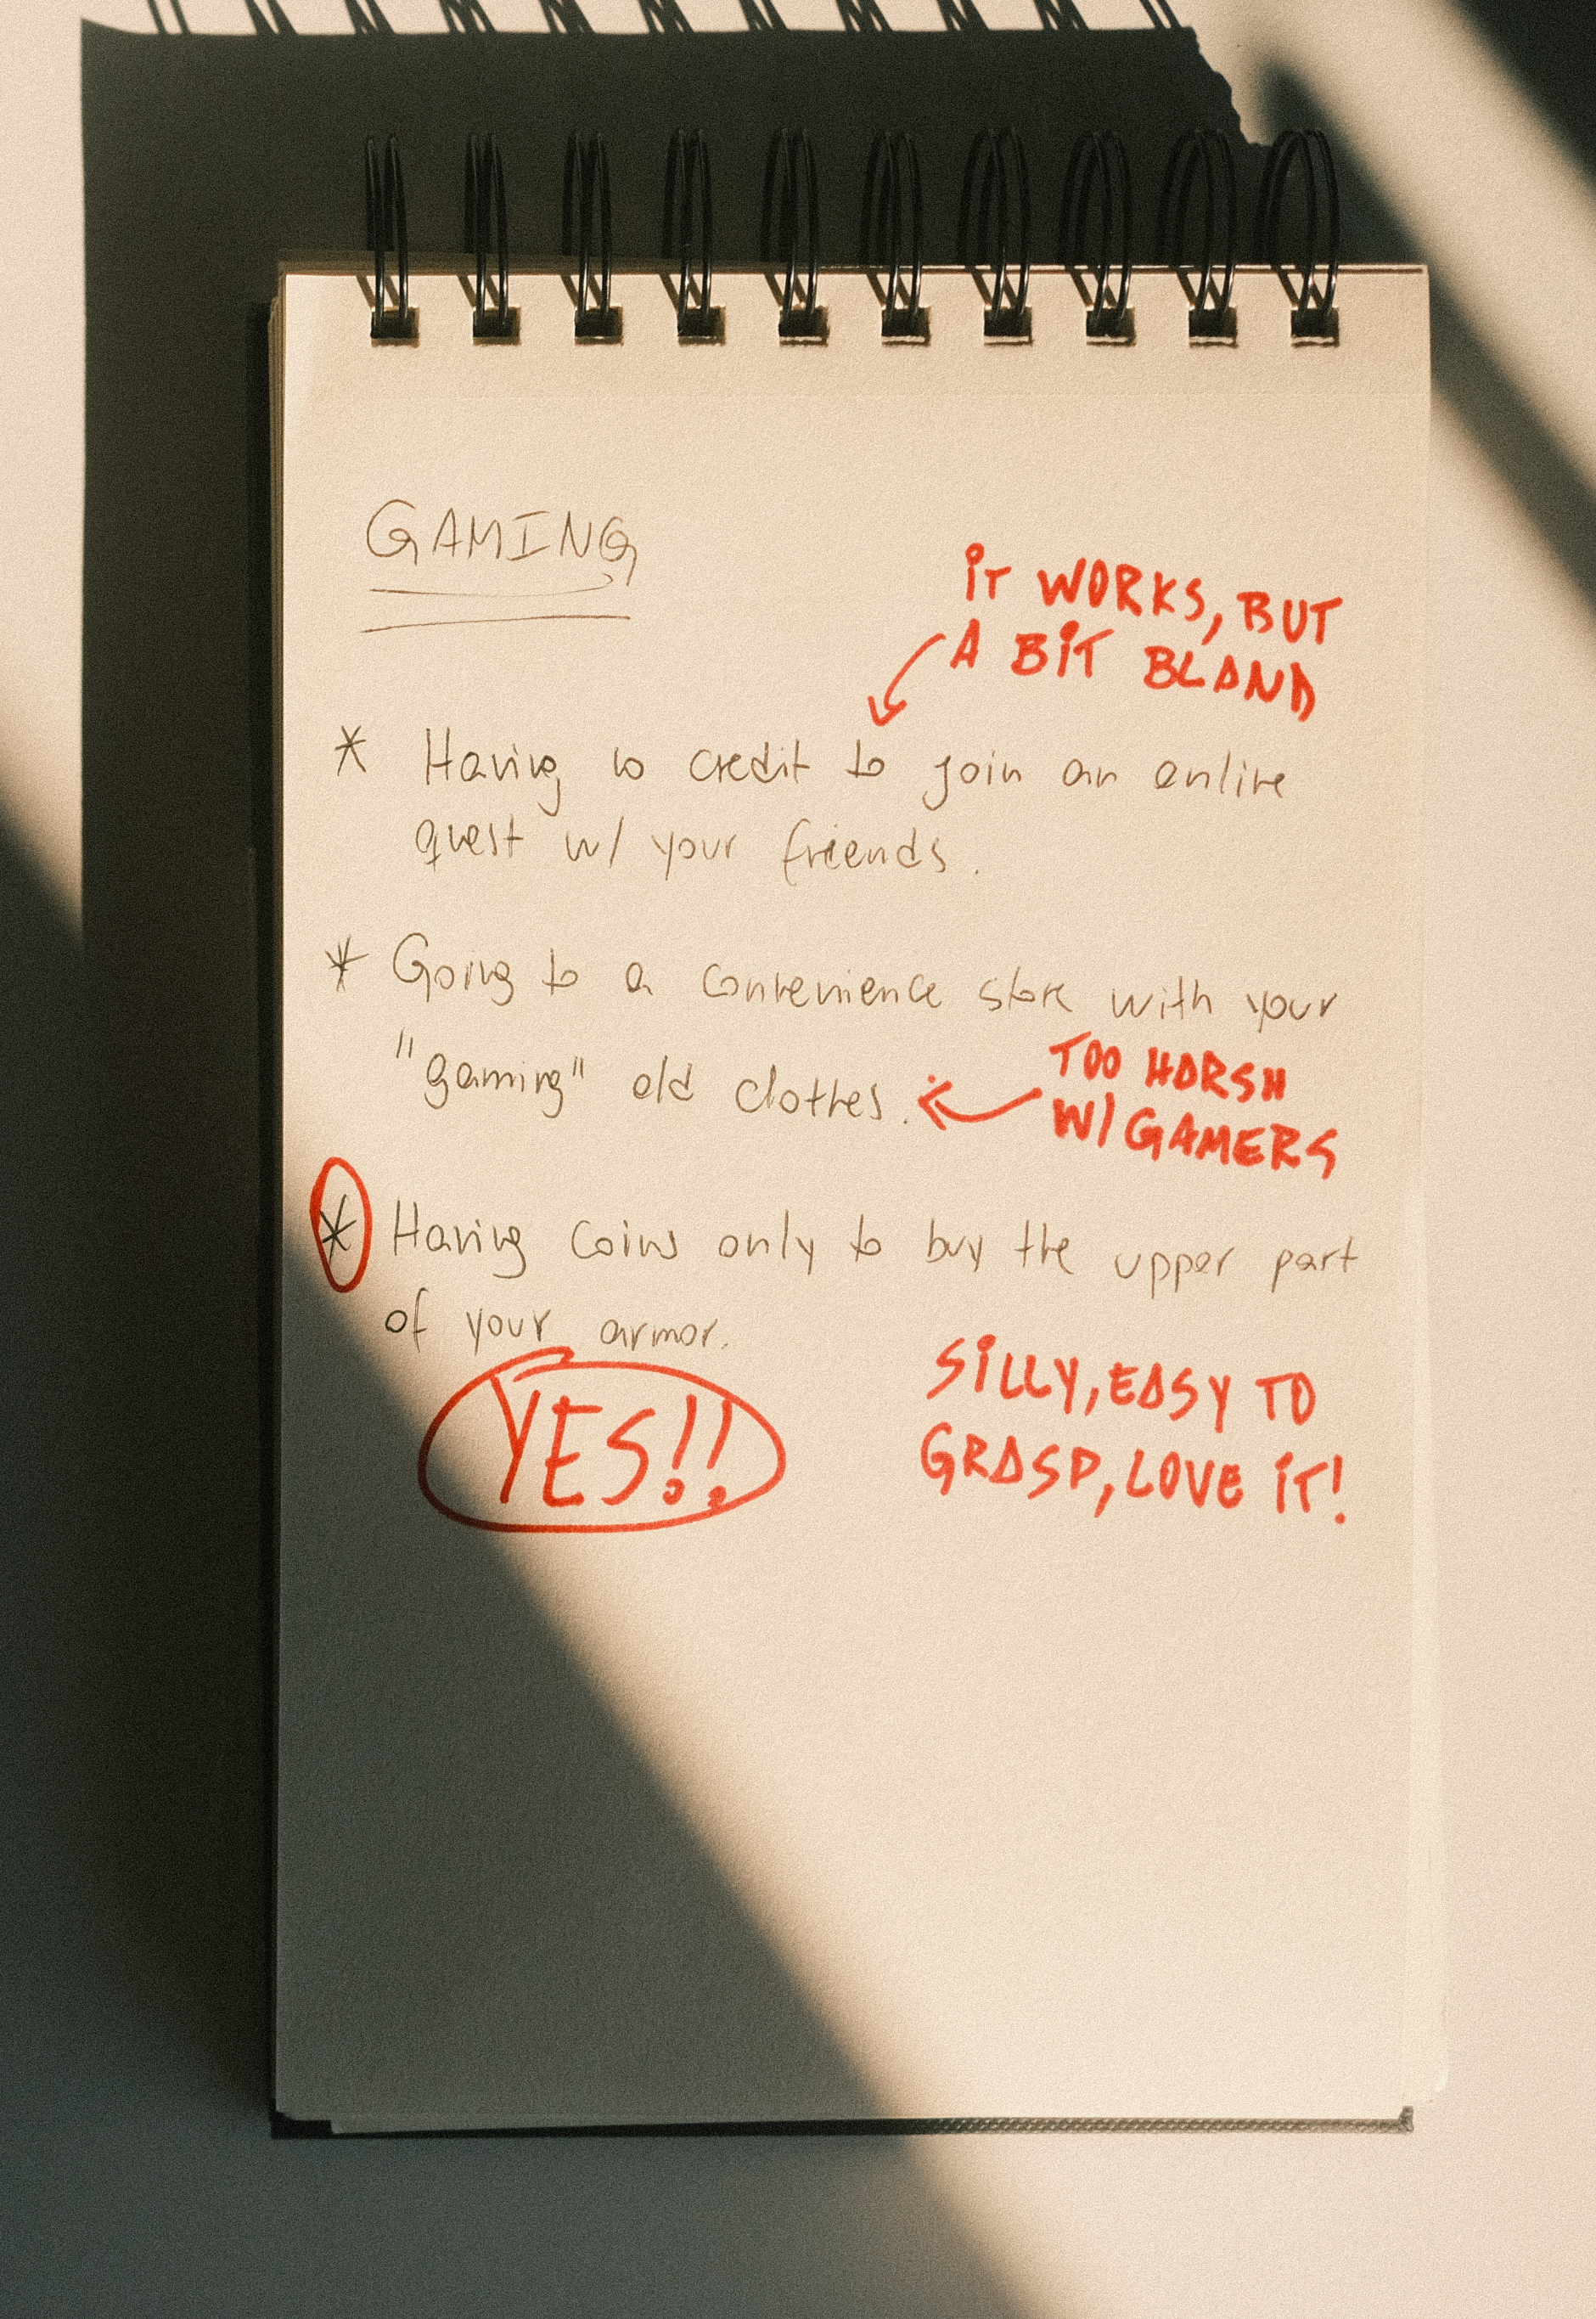 GAMING
IT WORKS, BUT
A BIT BLAND
* Having no credit to join an online
quest w/ your friends.
* Going to a convenience store with your
"gaming" old clothes.
TOO HARSH
W/ GAMERS
* Having coins only to buy the upper part
of your armor.
YES!!
SILLY, EASY TO
GRASP, LOVE IT!